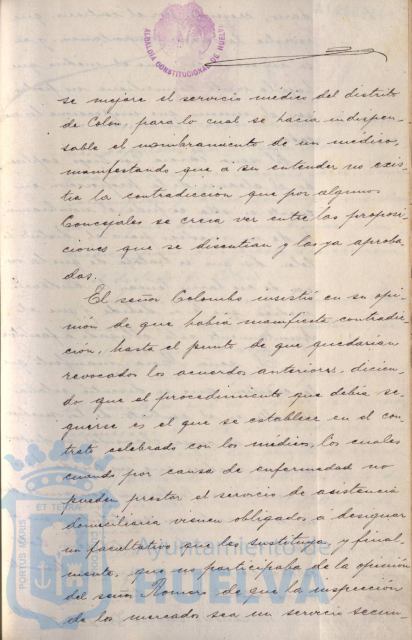 ALCALDIA CONSTITUCIONAL DE HUELVA
se mejore el servicio médico del distrito
de Colon, para lo cual se hacia indispen-
sable el nombramiento de un médico,
manifestando que á su entender no exis-
tia la contradicción que por algunos
Concejales se creia ver entre las proposi-
ciones que se discutian y las ya aproba-
das.
El señor Colombo insistió en su opi-
nión de que habia manifiesta contradic-
ción, hasta el punto de que quedarian
revocados los acuerdos anteriores, dicien-
do que el procedimiento que debia se-
guirse es el que se establece en el con-
trato celebrado con los médicos, los cuales
cuando por causa de enfermedad no
puedan prestar el servicio de asistencia
domiciliaria vienen obligados á designar
un facultativo que los sustituya, y final-
mente, que no participaba de la opinión
del señor Romero de que la inspección
de los mercados sea un servicio secun-
PORTUS MARIS ET TERRÆ CUSTODIA
Ayuntamiento de
HUELVA